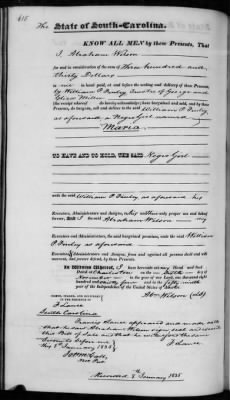 415
The State of South-Carolina.
KNOW ALL MEN by these Presents, That
I, Abraham Wilson
for and in consideration of the sum of Three hundred and
thirty Dollars
to me in hand paid, at and before the sealing and delivery of these Presents,
by William P Trustee of George and
Eliza
(the receipt whereof do hereby acknowledge) have bargained and sold, and by these
Presents, do bargain, sell and deliver to the said William P
as aforesaid a Negro Girl named
Maria.
TO HAVE AND TO HOLD THE SAID Negro Girl
unto the said William P as aforesaid his
Executors, Administrators and Assigns,
the said Abraham Wilson my
Executors and Administrators, the said bargained premises, unto the said William
P as aforesaid
Executors, Administrators and Assigns, from and against all persons shall and will
warrant, and forever defend, by these Presents.
In Witness Whereof, I have hereunto set my Hand and Seal
Dated at Charleston on the day of
November in the year of our Lord one thousand eight
hundred and thirty four and in the fifty ninth
year of the Independence of the United States of America.
SIGNED, SEALED, AND DELIVERED
IN THE PRESENCE OF
Abm Wilson
South Carolina
Francis appeared and made oath
that he saw Abraham Wilson sign seal and
this Bill of Sale and that he
before me
January 1835
Recorded 8th January 1835